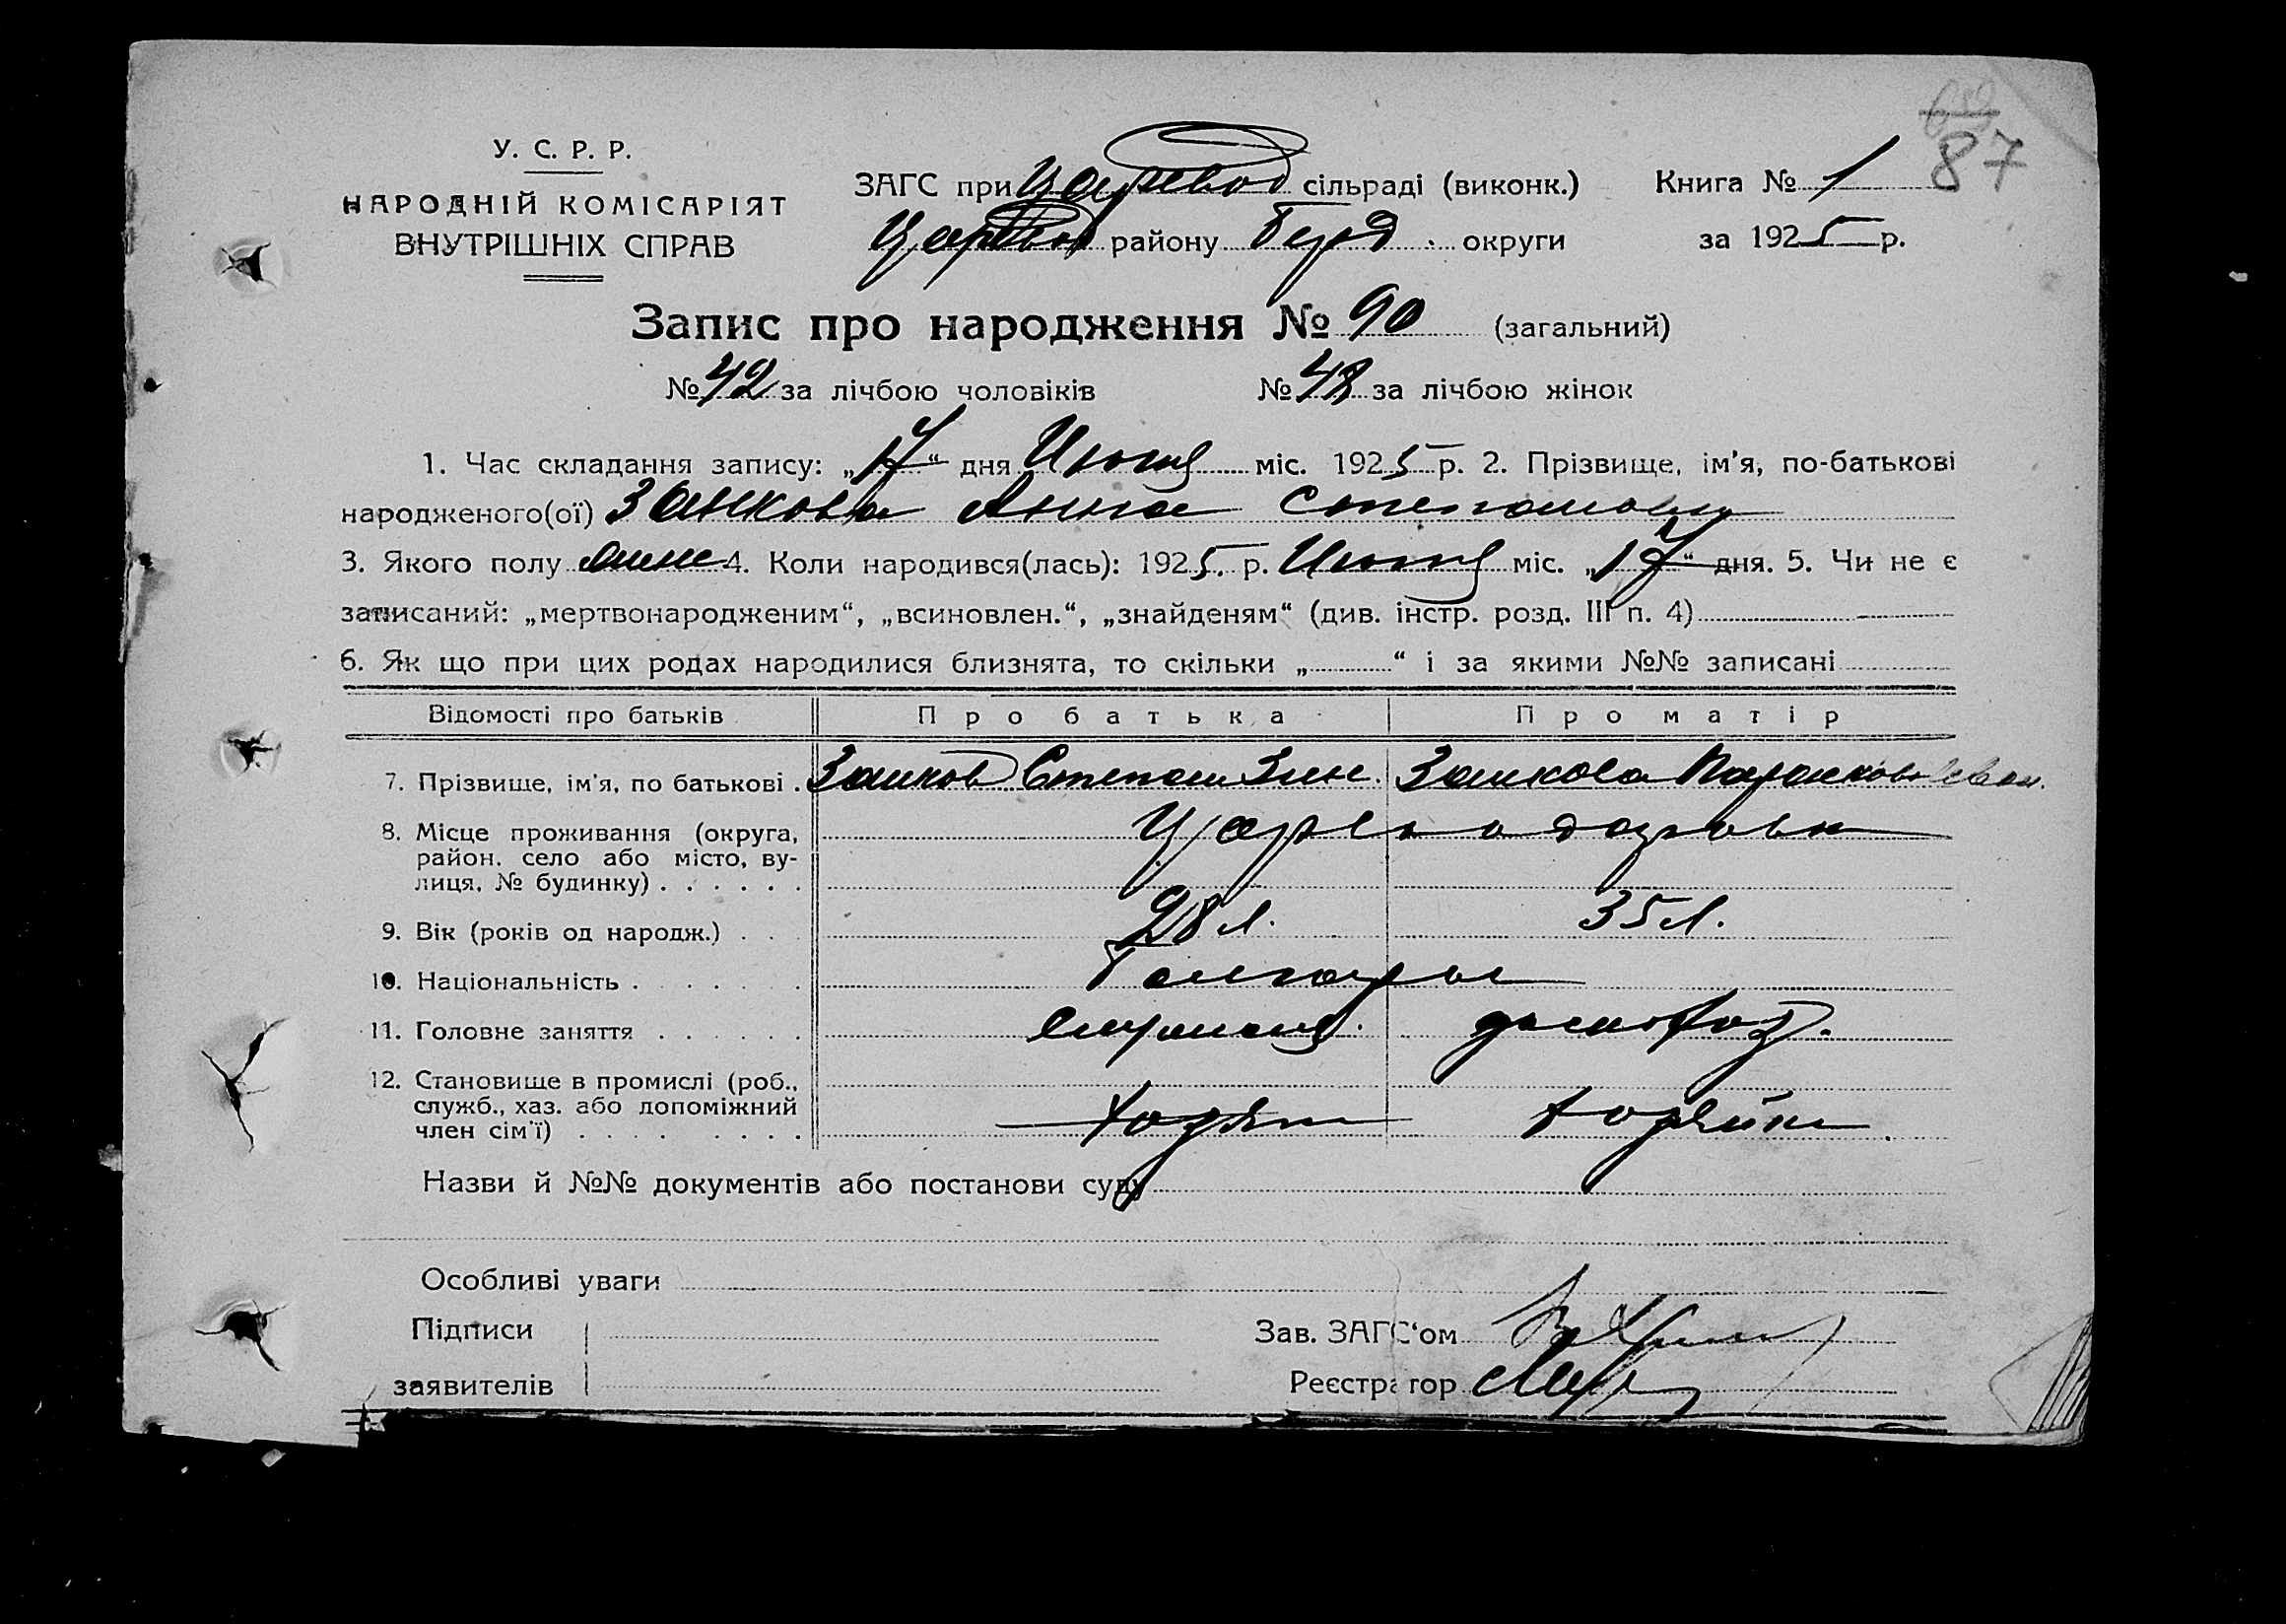 87
У. С. Р. Р.
НАРОДНІЙ КОМІСАРІЯТ
ВНУТРІШНІХ СПРАВ
ЗАГС при Царевод сільраді (виконк.) Книга № 1
Царевод району Берд. округи за 1925 р.
Запис про народження № 90 (загальний)
№ 42 за лічбою чоловіків № 48 за лічбою жінок
1. Час складання запису: „17“ дня міс. 1925 р. 2. Прізвище, ім'я, по-батькові
народженого(ої) Занкова Анна Степановна
3. Якого полу жене 4. Коли народився(лась): 1925 р. міс. „17“ дня. 5. Чи не є
записаний: „мертвонародженим“, „всиновлен.“, „знайденям“ (див. інстр. розд. III п. 4)
6. Як що при цих родах народилися близнята, то скільки „ “ і за якими №№ записані
Відомості про батьків Про батька Про матір
7. Прізвище, ім'я, по батькові . Занков Степан Зин. Занкова Парасковь Иван.
8. Місце проживання (округа,
район, село або місто, ву-
лиця, № будинку) . . . . . .
9. Вік (років од народж.) . . . 28 л. 35 л.
10. Національність . . . . . . . Болгары
11. Головне заняття . . . . . . домохоз.
12. Становище в промислі (роб.,
служб., хаз. або допоміжний
член сім'ї) . . . . . . . . Хозяин Хозяйка
Назви й №№ документів або постанови суду
Особливі уваги
Підписи
заявителів
Зав. ЗАГС'ом
Реєстратор